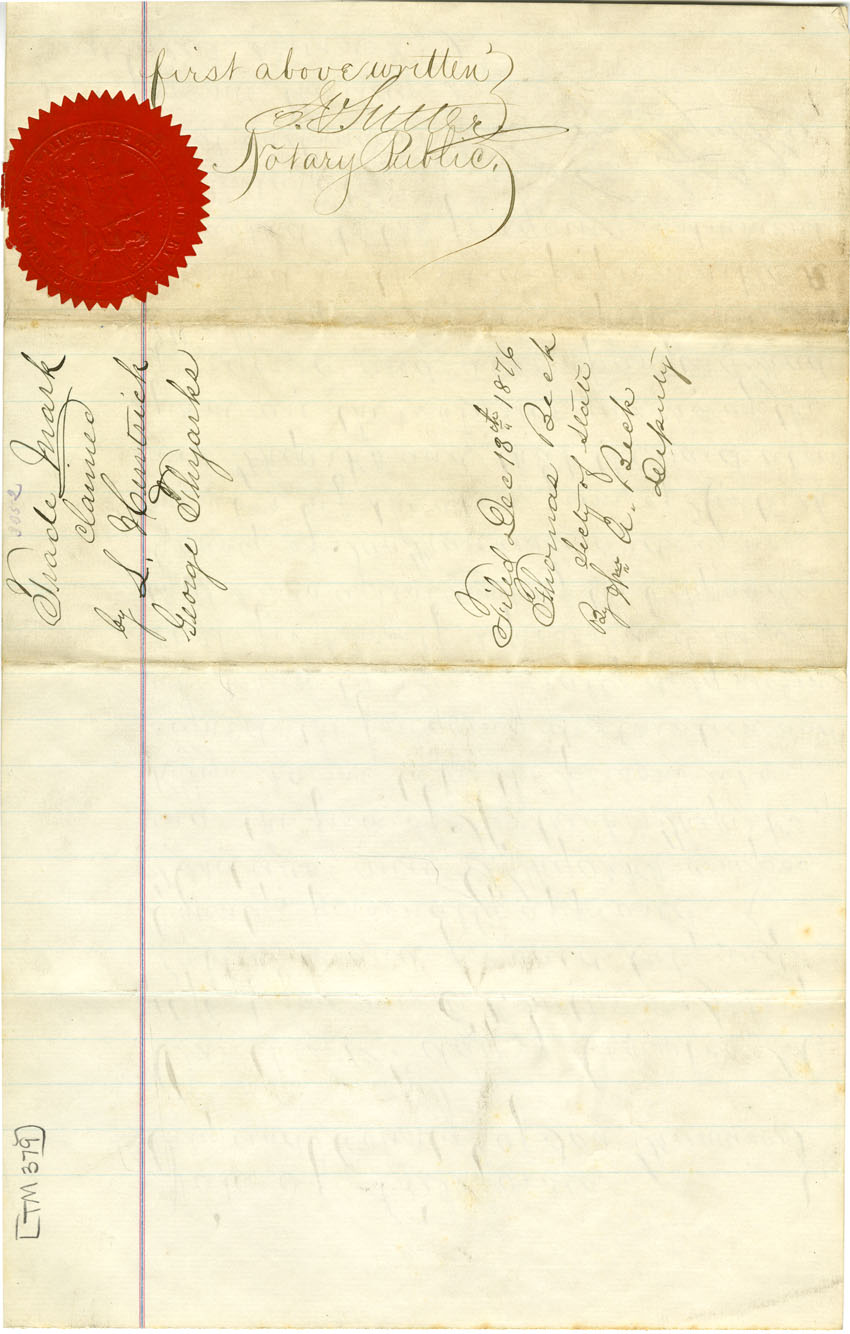 first above written
Sutter
Notary Public.
Trade Mark
claimed
by L.
George Thyarks
Filed Dec 18th 1876
Thomas Beck
Secty of State
By Wm A. Beck
Deputy
3052
[TM 379]